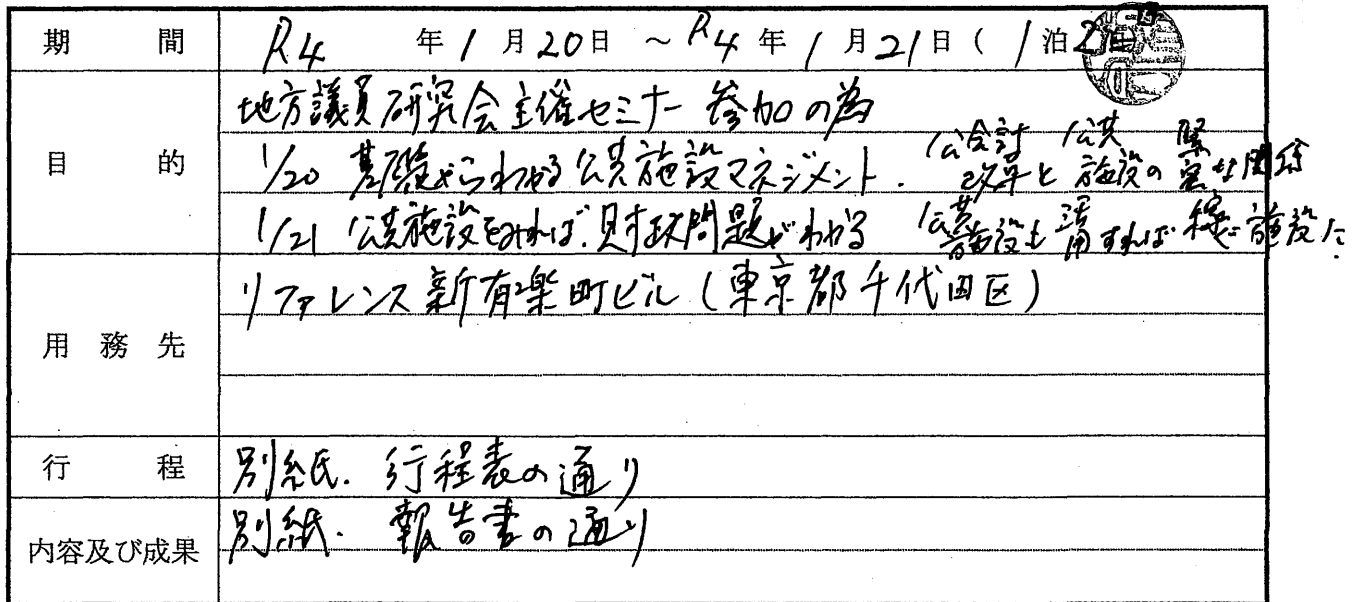 期間 R4年1月20日 ~ R4年1月21日(1泊2日
目的 地方議員研究会主催セミナー参加の為
1/20 基礎からわかる公共施設マネジメント. 公会計改革と公共施設の緊密な関係
1/21 公共施設をみれば、財政問題がわかる 公共施設も活用すれば稼ぐ施設に.
用務先 リファレンス新有楽町ビル(東京都千代田区)
行程 別紙. 行程表の通り
内容及び成果 別紙. 報告書の通り